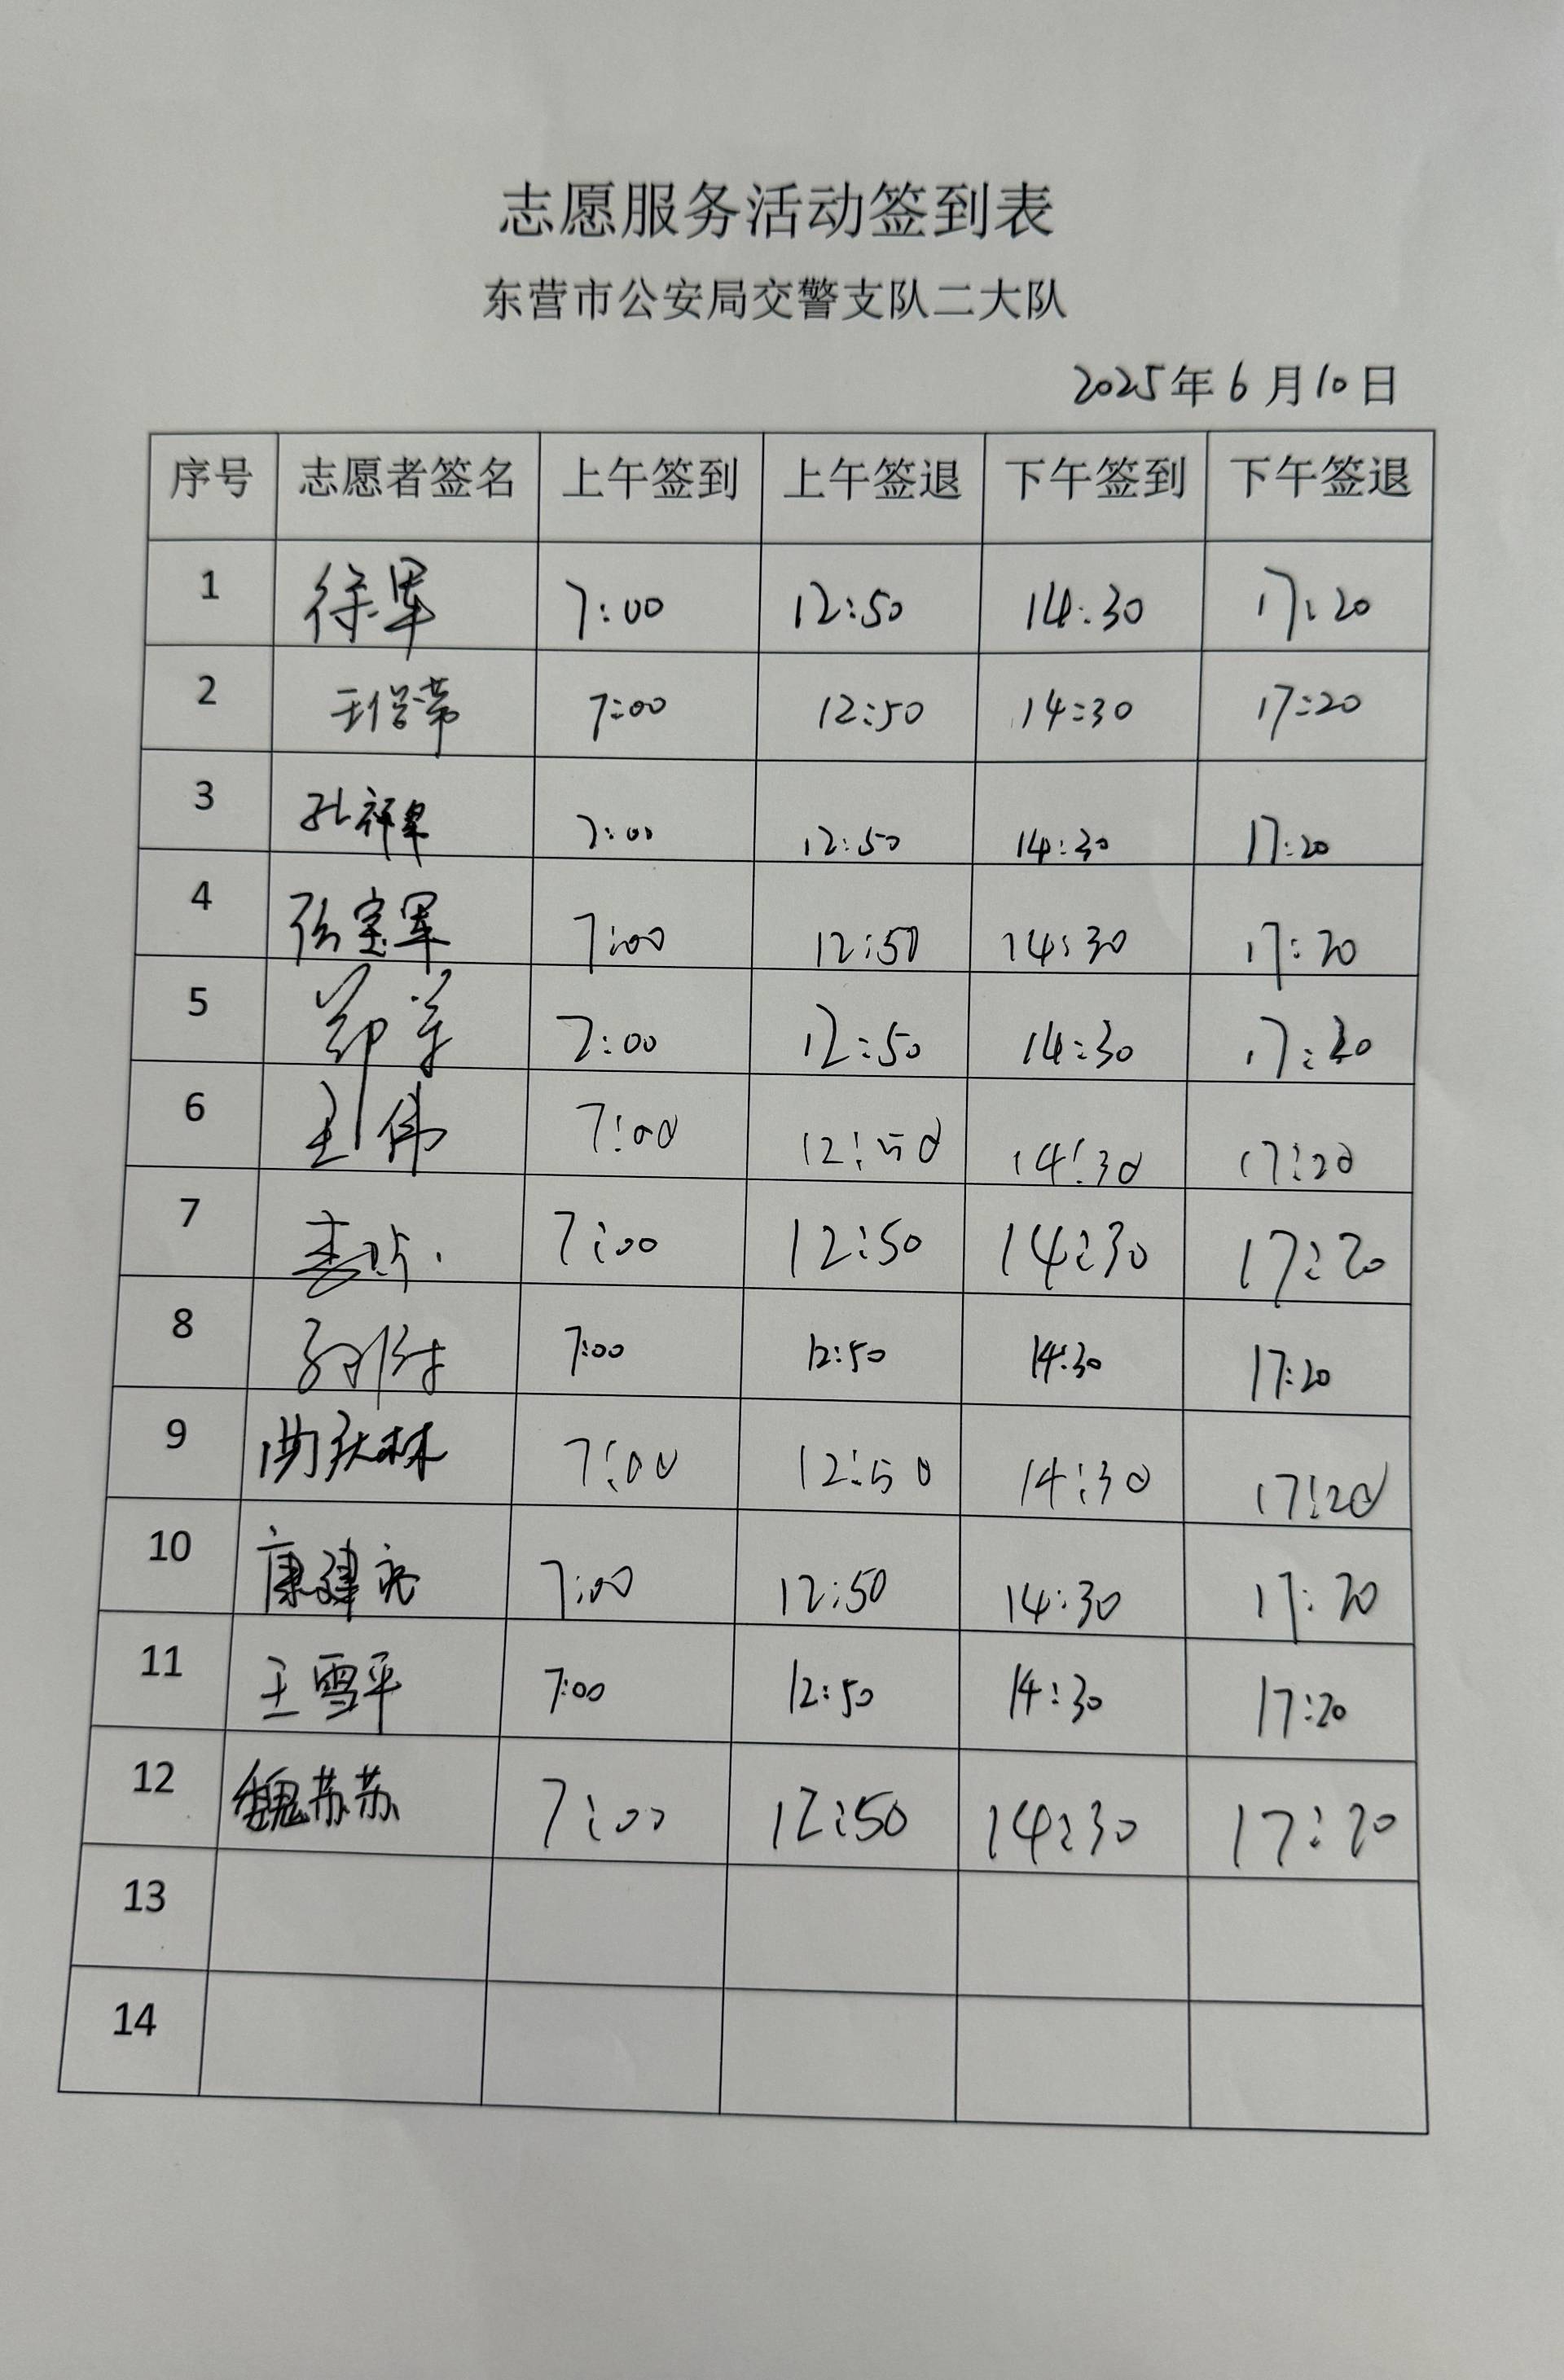 志愿服务活动签到表
东营市公安局交警支队二大队
2025年6月10日
序号 志愿者签名 上午签到 上午签退 下午签到 下午签退
1 徐军 7:00 12:50 14:30 17:20
2 7:00 12:50 14:30 17:20
3 孔祥军 7:00 12:50 14:30 17:20
4 张宝军 7:00 12:50 14:30 17:20
5 7:00 12:50 14:30 17:20
6 7:00 12:50 14:30 17:20
7 7:00 12:50 14:30 17:20
8 7:00 12:50 14:30 17:20
9 7:00 12:50 14:30 17:20
10 康建 7:00 12:50 14:30 17:20
11 王雪平 7:00 12:50 14:30 17:20
12 魏苏苏 7:00 12:50 14:30 17:20
13
14